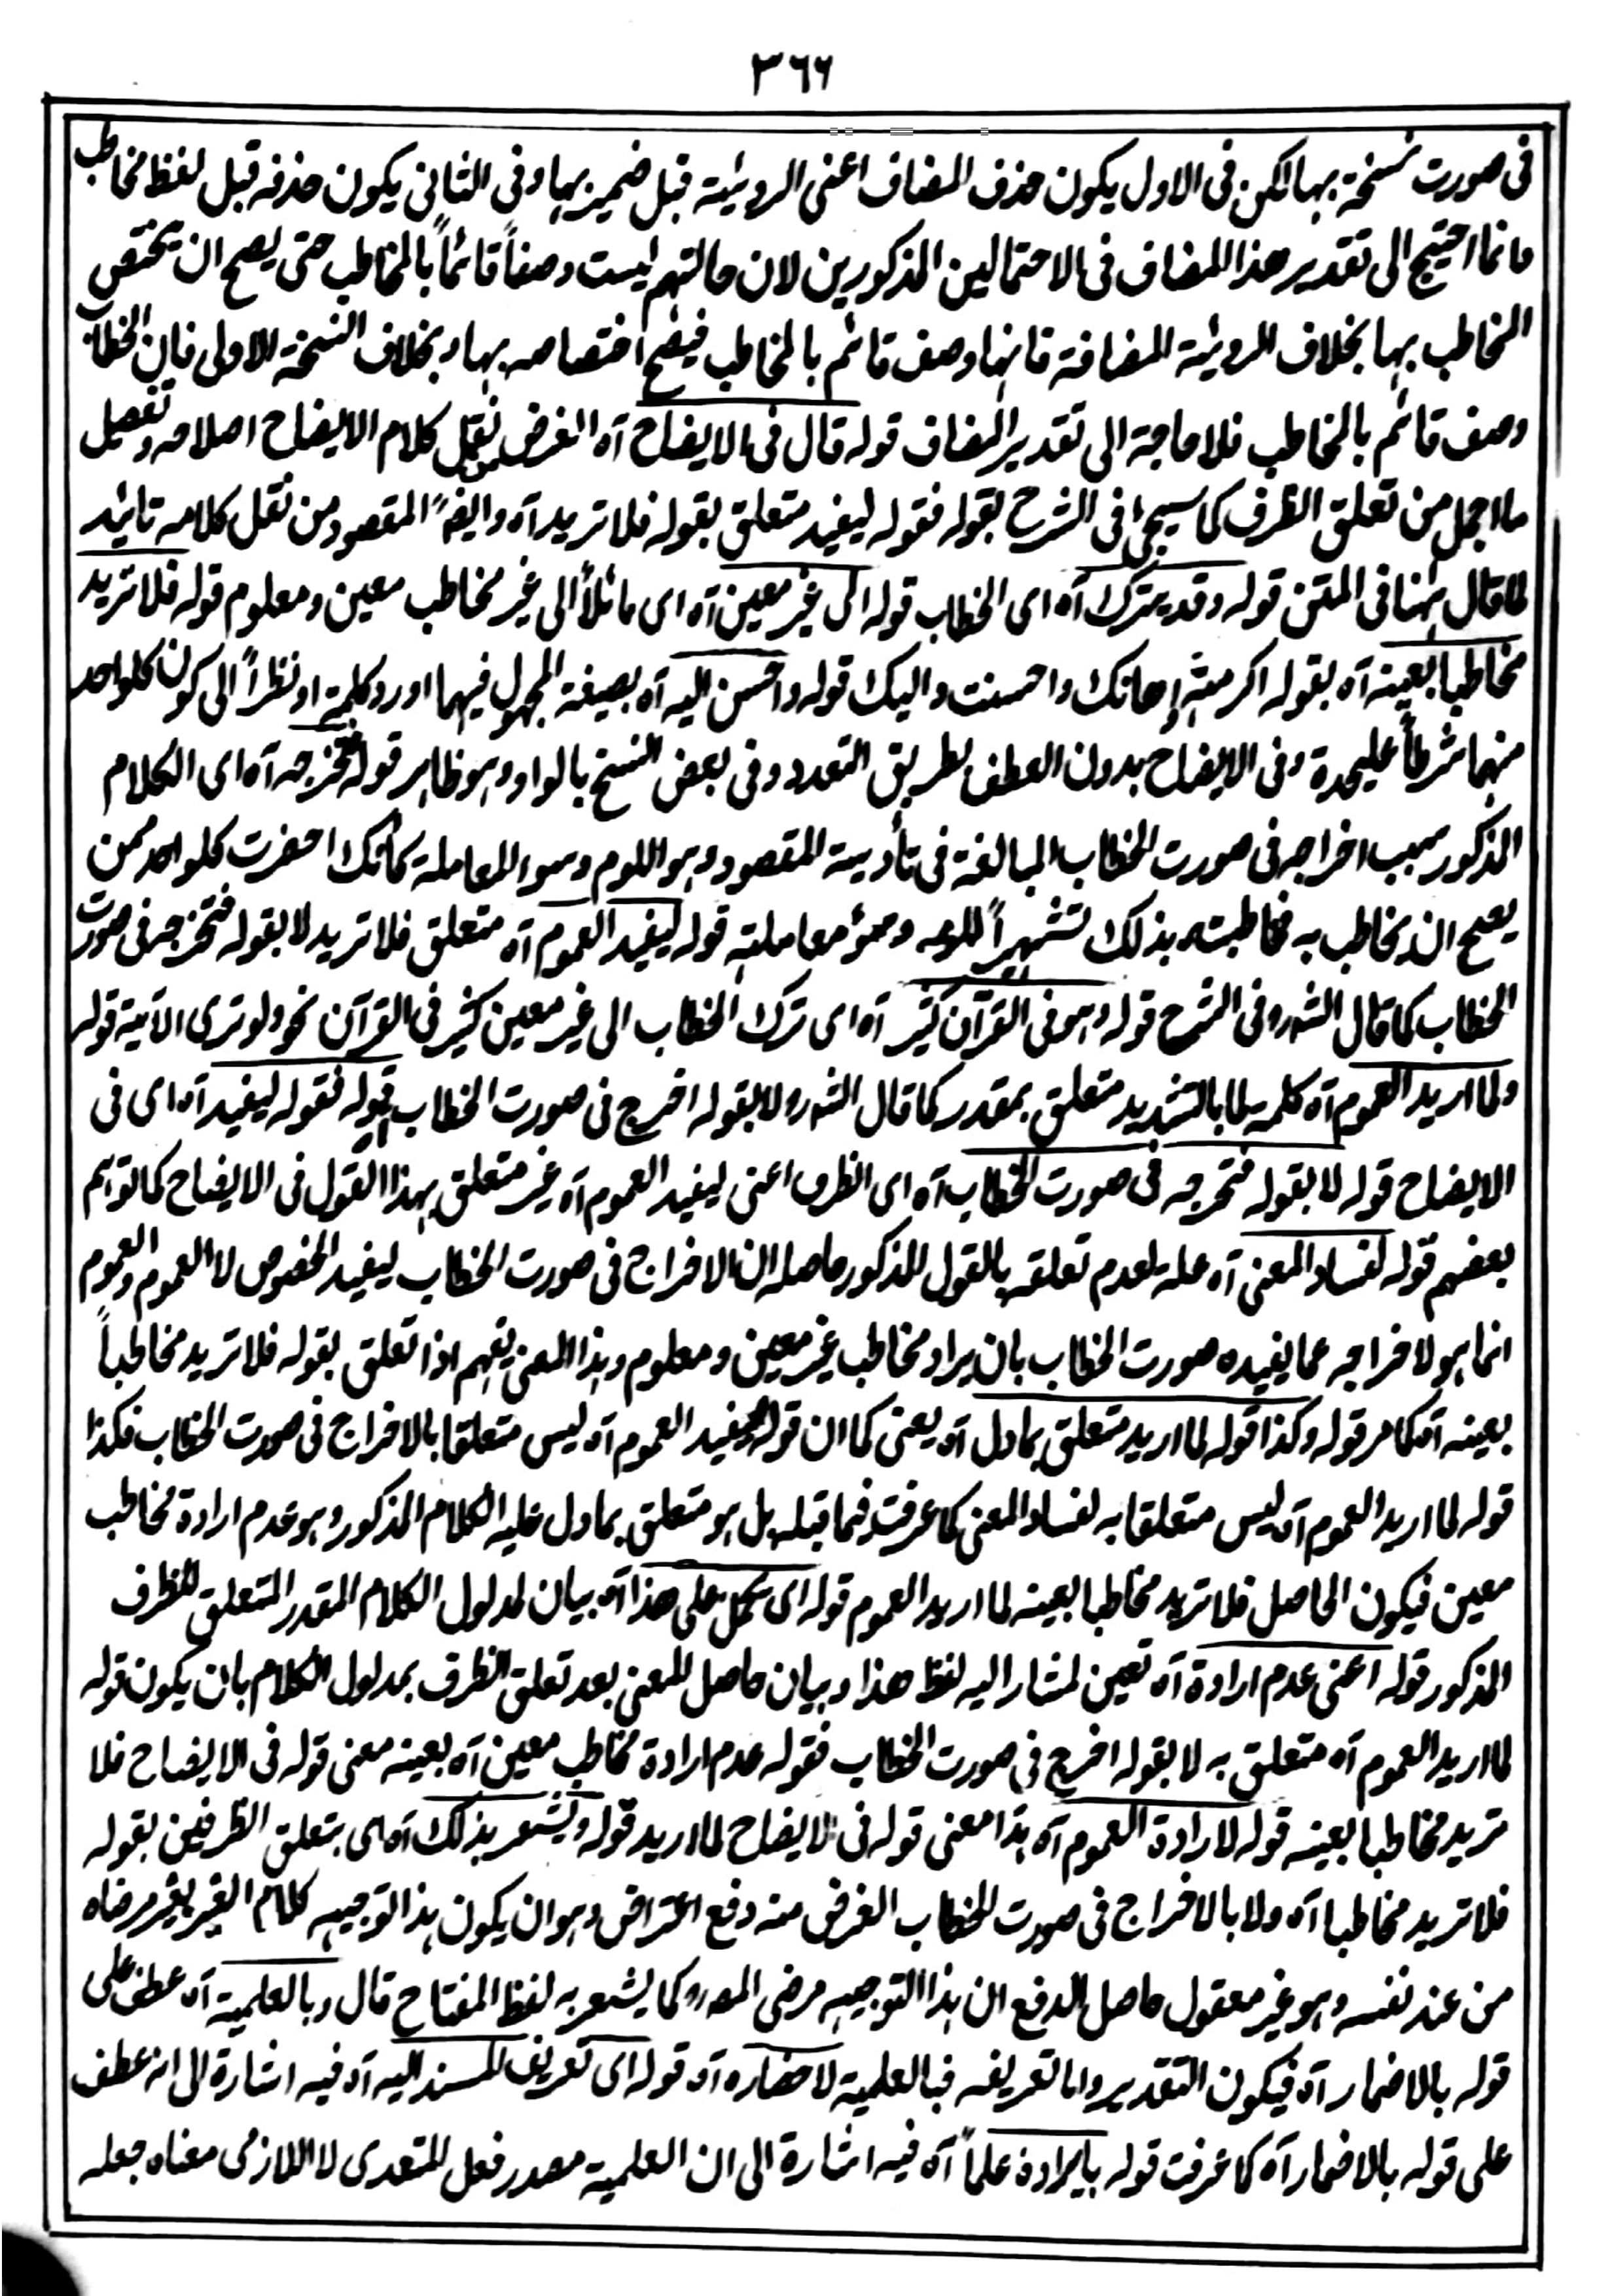 ٣٦٦
فى صورت نسخة بها لكن فى الاول يكون حذف المضاف اعنى الروئية قبل ضمير بها وفى الثانى يكون حذفه قبل لفظ مخاطب
وانما احتيج الى تقدير هذا المضاف فى الاحتمالين المذكورين لان حالتهم ليست وصفاً قائماً بالمخاطب حتى يصح ان يختص
المخاطب بها بخلاف الروئية المضافة فانها وصف قائم بالمخاطب فيصح اختصاصه بها وبخلاف النسخة الاولى فان الخطاب
وصف قائم بالمخاطب فلا حاجة الى تقدير المضاف قوله قال فى الايضاح آه الغرض من نقل كلام الايضاح اصلاحه وتفصيل
ما اجمل من تعلق الظرف كما سيجئ فى الشرح بقوله فقوله ليفيد متعلق بقوله فلا تريد آه وايضاً المقصود من نقل كلامه تائيد
لما قال ههنا فى المتن قوله وقد يترك آه اى الخطاب قوله الى غير معين آه اى مائلاً الى غير مخاطب معين ومعلوم قوله فلا تريد
مخاطبا بعينه آه بقوله اكرمته اهانك واحسنت واليك قوله واحسن اليه آه بصيغة المجهول فيهما اورد كلمة او نظراً الى كون كلواحد
منهما شرطاً عليحدة وفى الايضاح بدون العطف بطريق التعدد وفى بعض النسخ بالواو وهو ظاهر قوله فتخرجه آه اى الكلام
المذكور سبب اخراجه فى صورت الخطاب المبالغة فى تأدية المقصود وهو اللوم وسوء المعاملة كأنك احضرت كلواحد ممن
يصح ان يخاطب به مخاطبته بذلك تشهيراً للومه وسوء معاملته قوله ليفيد العموم آه متعلق فلا تريد لا بقوله فتخرجه فى صورت
الخطاب كما قال الشہ رہ فى الشرح قوله وهو فى القرآن كثير آه اى ترك الخطاب الى غير معين كثير فى القرآن نحو ولو ترى الآية قوله
ولما اريد العموم آه كلمة لما بالتشديد متعلق بمقدر كما قال الشہ رہ لا بقوله اخرج فى صورت الخطاب قوله فقوله ليفيد آه اى فى
الايضاح قوله لا بقوله فتخرجه فى صورت الخطاب آه اى الظرف اعنى ليفيد العموم آه غير متعلق بهذا القول فى الايضاح كما توهم
بعضهم قوله لفساد المعنى آه علة لعدم تعلقه بالقول المذكور حاصله ان الاخراج فى صورت الخطاب ليفيد الخصوص لا العموم والعموم
انما هو لاخراجه عما يفيده صورت الخطاب بان يراد مخاطب غير معين ومعلوم وهذا المعنى يفهم اذا تعلق بقوله فلا تريد مخاطباً
بعينه آه كما مر قوله وكذا قوله لما اريد متعلق بما دل آه يعنى كما ان قوله ليفيد العموم آه ليس متعلقا بالاخراج فى صورت الخطاب فكذا
قوله لما اريد العموم آه ليس متعلقا به لفساد المعنى كما عرفت فيما قبله بل هو متعلق بما دل عليه الكلام المذكور وهو عدم ارادة مخاطب
معين فيكون الحاصل فلا تريد مخاطبا بعينه لما اريد العموم قوله اى يحمل على هذا آه بيان لمدلول الكلام المقدر المتعلق للظرف
المذكور قوله اعنى عدم ارادة آه تعين لمشار اليه لفظ هذا وبيان حاصل المعنى بعد تعلق الظرف بمدلول الكلام بان يكون قوله
لما اريد العموم آه متعلق به لا بقوله اخرج فى صورت الخطاب فقوله عدم ارادة مخاطب معين آه بعينه معنى قوله فى الايضاح فلا
تريد مخاطبا بعينه قوله لارادة العموم آه هذا معنى قوله فى الايضاح لما اريد قوله ويشعر بذلك آه اى بتعلق الظرفين بقوله
فلا تريد مخاطبا آه ولا بالاخراج فى صورت الخطاب الغرض منه دفع اعتراض وهو ان يكون هذا توجيه كلام الغير بغير مرضاه
من عند نفسه وهو غير معقول حاصل الدفع ان هذا التوجيه مرضى المصہ رہ كما يشعر به لفظ المفتاح قال وبالعلمية آه عطف على
قوله بالاضمار آه فيكون التقدير واما تعريفه فبالعلمية لاحضاره آه قوله اى تعريف المسند اليه آه فيه اشارة الى انه عطف
على قوله بالاضمار آه كما عرفت قوله بايراده علماً آه فيه اشارة الى ان العلمية مصدر فعل المتعدى لا اللازمى معناه جعله